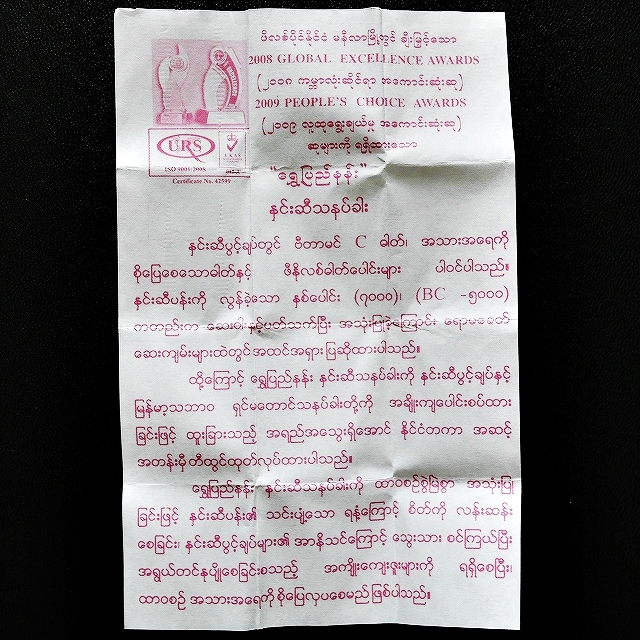 ဖိလစ်ပိုင်နိုင်ငံ မနီလာမြို့တွင် ချီးမြှင့်သော
2008 GLOBAL EXCELLENCE AWARDS
(၂၀၀၈ ကမ္ဘာလုံးဆိုင်ရာ အကောင်းဆုံးဆု)
2009 PEOPLE'S CHOICE AWARDS
(၂၀၀၉ လူထုရွေးချယ်မှု အကောင်းဆုံးဆု)
ဆုများကို ရရှိထားသော
URS
UKAS
ISO 9001:2008
Certificate No. 42599
"ရွှေပြည်နန်း"
နှင်းဆီသနပ်ခါး
နှင်းဆီပွင့်ချပ်တွင် ဗီတာမင် C ဓါတ်၊ အသားအရေကို
စိုပြေစေသောဓါတ်နှင့် ဖီနိလစ်ဓါတ်ပေါင်းများ ပါဝင်ပါသည်။
နှင်းဆီပန်းကို လွန်ခဲ့သော နှစ်ပေါင်း (၇၀၀၀)၊ (BC -၅၀၀၀)
ကတည်းက ဆေးဝါးနှင့်ပတ်သက်ပြီး အသုံးပြုခဲ့ကြောင်း ရောမခေတ်
ဆေးကျမ်းများထဲတွင်အထင်အရှားပြဆိုထားပါသည်။
ထို့ကြောင့် ရွှေပြည်နန်း နှင်းဆီသနပ်ခါးကို နှင်းဆီပွင့်ချပ်နှင့်
မြန်မာ့သဘာဝ ရှင်မတောင်သနပ်ခါးတို့ကို အချိုးကျပေါင်းစပ်ထား
ခြင်းဖြင့် ထူးခြားသည့် အရည်အသွေးရှိအောင် နိုင်ငံတကာ အဆင့်
အတန်းမှီ တီထွင်ထုတ်လုပ်ထားပါသည်။
ရွှေပြည်နန်း နှင်းဆီသနပ်ခါးကို ထာဝစဉ်စွဲမြဲစွာ အသုံးပြု
ခြင်းဖြင့် နှင်းဆီပန်း၏ သင်းပျံ့သော ရနံ့ကြောင့် စိတ်ကို လန်းဆန်း
စေခြင်း၊ နှင်းဆီပွင့်ချပ်များ၏ အာနိသင်ကြောင့် သွေးသား စင်ကြယ်ပြီး
အရွယ်တင်နုပျိုစေခြင်းစသည့် အကျိုးကျေးဇူးများကို ရရှိစေပြီး၊
ထာဝစဉ် အသားအရေကိုစိုပြေလှပစေမည်ဖြစ်ပါသည်။